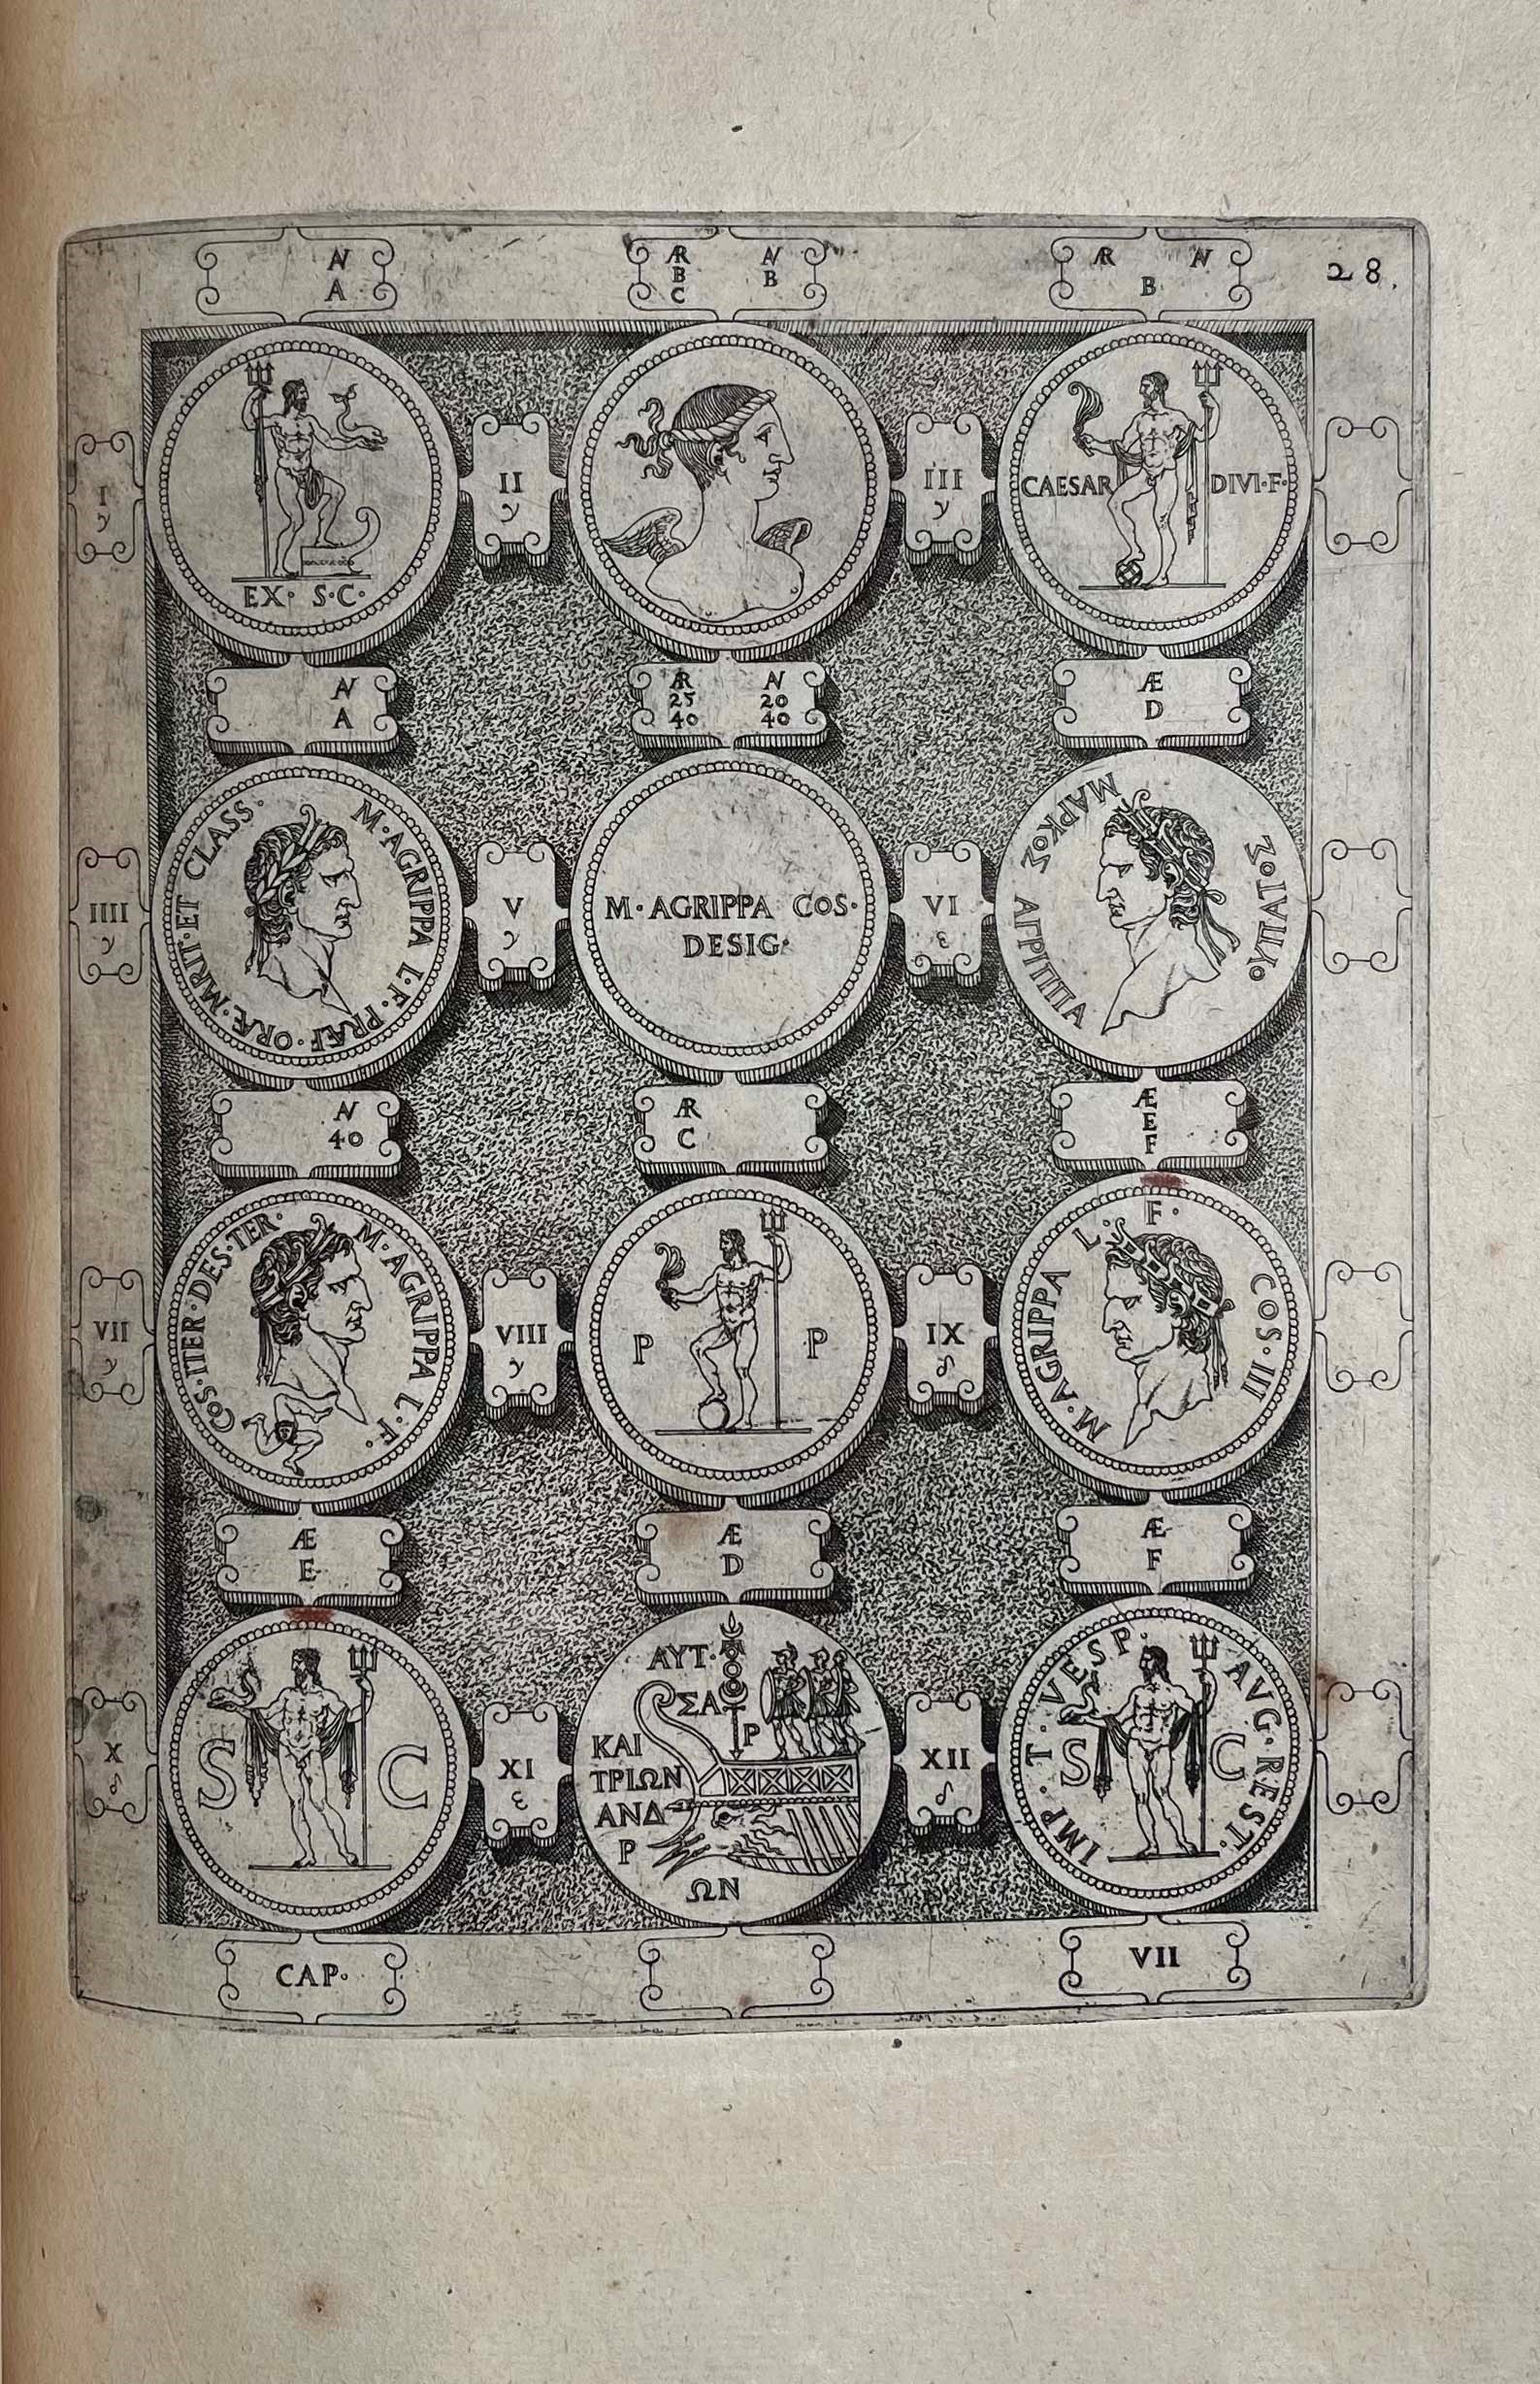 28.
Ꜹ
A
ÆR
B
C
Ꜹ
B
ÆR Ꜹ
B
I
γ
EX· S·C·
II
γ
III
γ
CAESAR DIVI·F·
Ꜹ
A
ÆR
25
40
Ꜹ
20
40
Æ
D
IIII
γ
M·AGRIPPA L·F·PRÆF·ORÆ·MRIT·ET CLASS·
V
γ
M·AGRIPPA COS·
DESIG·
VI
ε
ΜΑΡΚΟΣ ΑΓΡΙΠΠΑ
Ꜹ
40
ÆR
C
Æ
E
F
VII
γ
M·AGRIPPA L·F·
COS·ITER·DES·TER·
VIII
γ
P P
IX
δ
M·AGRIPPA L· F· COS·III
Æ
E
Æ
D
Æ
F
X
δ
S C
XI
ε
ΑΥΤ·
ΣΑ
Ρ
ΚΑΙ
ΤΡΙΩΝ
ΑΝΔ
Ρ
ΩΝ
XII
δ
IMP·T·VESP· AVG·REST·
S C
CAP·
VII